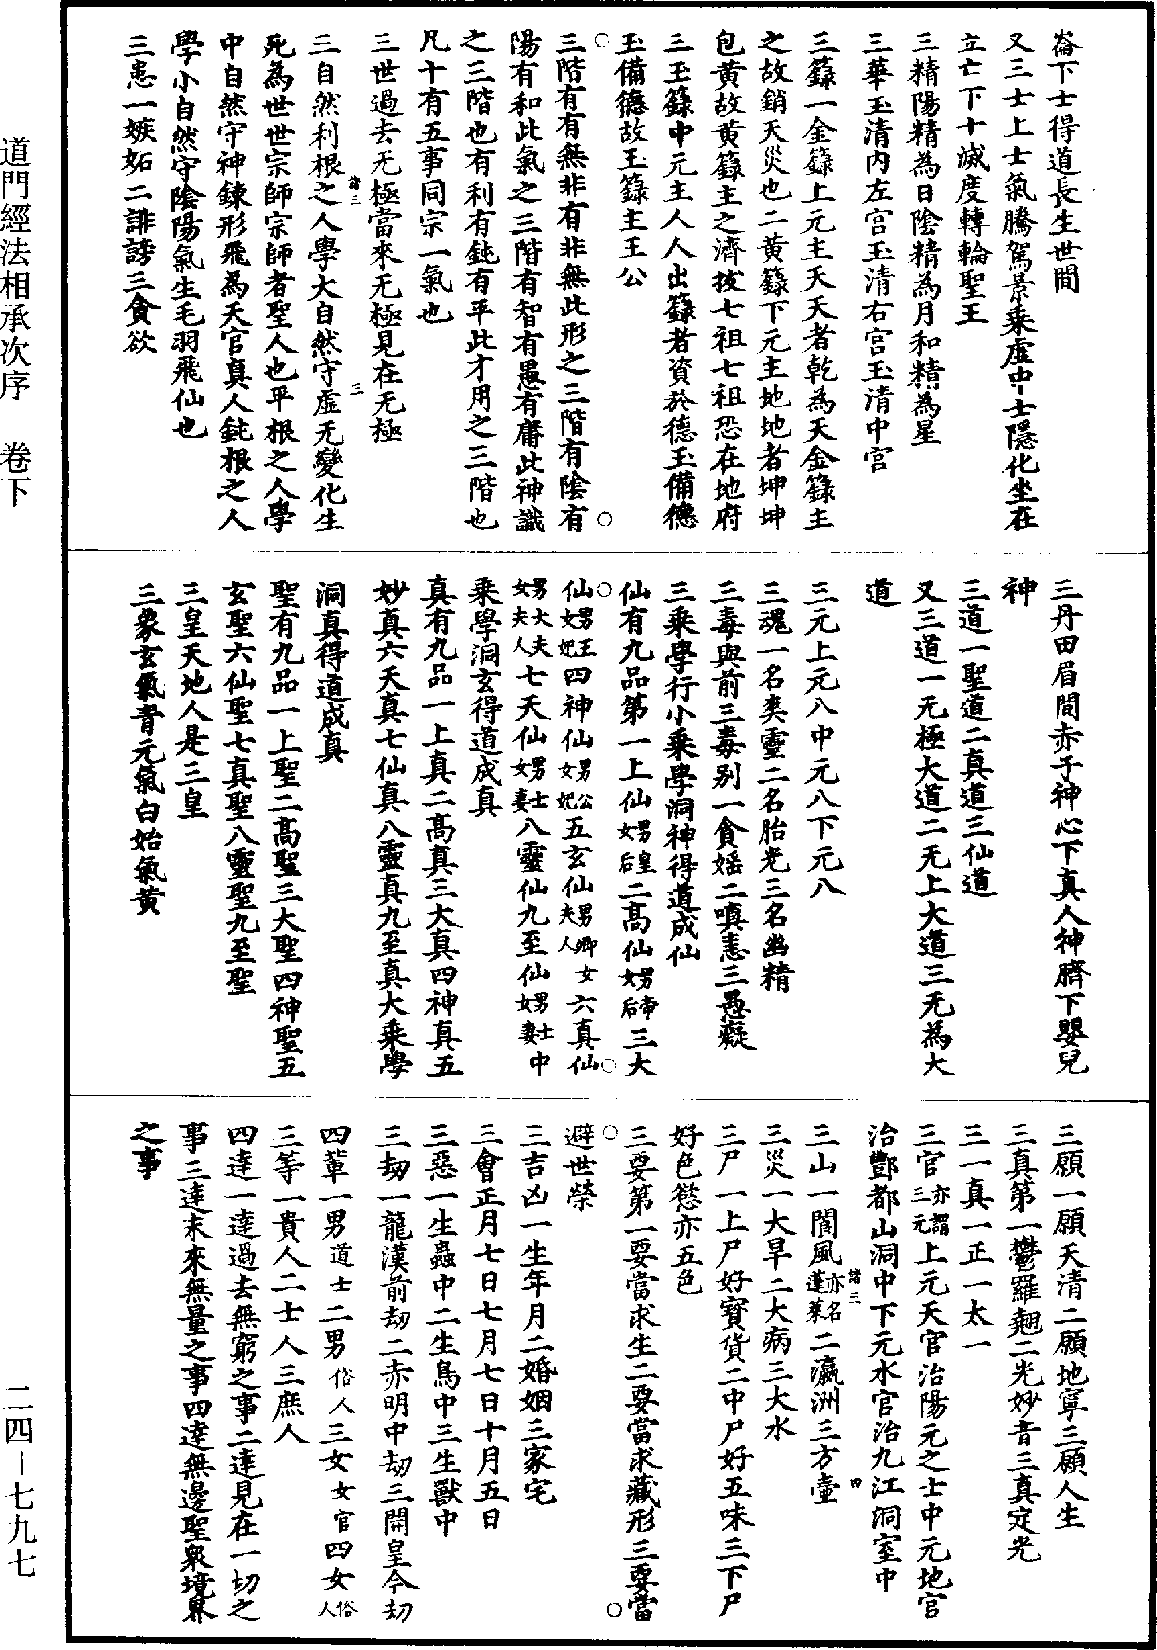 崙下士得道長生世間
又三士上士氣騰駕景乘虛中士隱化坐在
立亡下士滅度轉輪聖王
三精陽精為日陰精為月和精為星
三華玉清內左宮玉清右宮玉清中宮
三籙一金籙上元主天天者乾為天金籙主
之故銷天災也二黃籙下元主地地者坤坤
包黃故黃籙主之濟拔七祖七祖恐在地府
三玉籙中元主人人出籙者資於德玉備德
玉備德故玉籙主王公
三階有有無非有非無此形之三階有陰有
陽有和此氣之三階有智有愚有庸此神識
之三階也有利有鈍有平此才用之三階也
凡十有五事同宗一氣也
三世過去无極當來无極見在无極
諸三 三
三自然利根之人學大自然守虛无變化生
死為世世宗師宗師者聖人也平根之人學
中自然守神鍊形飛為天官真人鈍根之人
學小自然守陰陽氣生毛羽飛仙也
三患一嫉妬二誹謗三貪欲
三丹田眉間赤子神心下真人神臍下嬰兒
神
三道一聖道二真道三仙道
又三道一无極大道二无上大道三无為大
道
三元上元八中元八下元八
三魂一名爽靈二名胎光三名幽精
三毒與前三毒別一貪婬二嗔恚三愚癡
三乘學行小乘學洞神得道成仙
仙有九品第一上仙男皇女后二高仙男帝女后三大
仙男王女妃四神仙男公女妃五玄仙男卿女夫人六真仙
男大夫女夫人七天仙男士女妻八靈仙九至仙男士女妻中
乘學洞玄得道成真
真有九品一上真二高真三大真四神真五
妙真六天真七仙真八靈真九至真大乘學
洞真得道成真
聖有九品一上聖二高聖三大聖四神聖五
玄聖六仙聖七真聖八靈聖九至聖
三皇天地人是三皇
三象玄氣青元氣白始氣黃
三願一願天清二願地寧三願人生
三真第一鬱羅翹二光妙音三真定光
三一真一正一太一
三官亦謂三元上元天官治陽元之士中元地官
治酆都山洞中下元水官治九江洞室中
諸三 四
三山一閬風亦名蓬萊二瀛洲三方壷
三災一大旱二大病三大水
三尸一上尸好寳貨二中尸好五味三下尸
好色慾亦五色
三要第一要當求生二要當求藏形三要當
避世榮
三吉凶一生年月二婚姻三家宅
三會正月七日七月七日十月五日
三惡一生蟲中二生鳥中三生獸中
三劫一龍漢前劫二赤明中劫三開皇今劫
四輩一男道士二男俗人三女女官四女俗人
三等一貴人二士人三庶人
四達一達過去無窮之事二達見在一切之
事三達末來無量之事四達無邊聖衆境界
之事
道門經法相承次序 卷下
二四－七九七